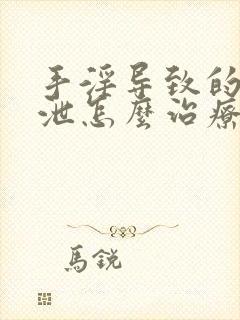 手淫导致的
泄怎麼治療
馬銳